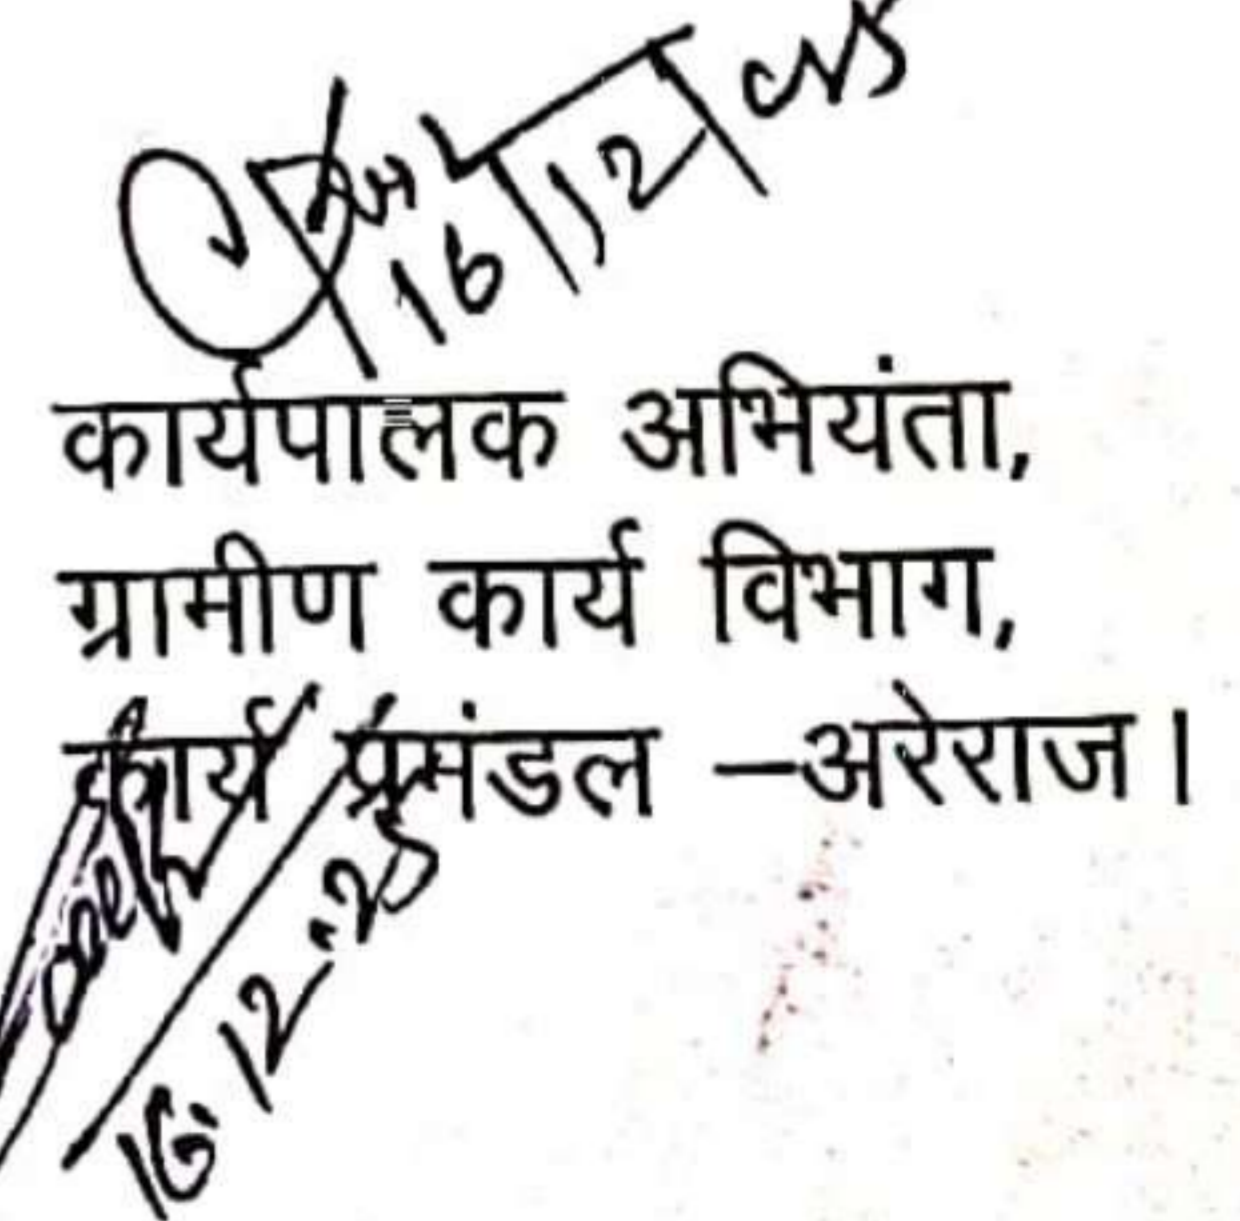 16/12/25
कार्यपालक अभियंता,
ग्रामीण कार्य विभाग,
कार्य प्रमंडल –अरेराज।
16.12.25